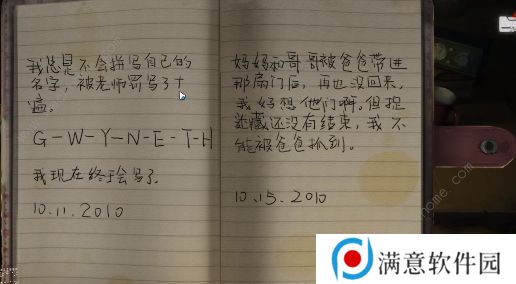 我总是不会拼写自己的
名字，被老师罚写了十
遍。
G-W-Y-N-E-T-H
我现在终于会写了。
10.11.2010
妈妈和哥哥被爸爸带进
那扇门后，再也没回来，
我好想他们啊。但捉
迷藏还没有结束，我不
能被爸爸抓到。
10.15.2010
满意软件园